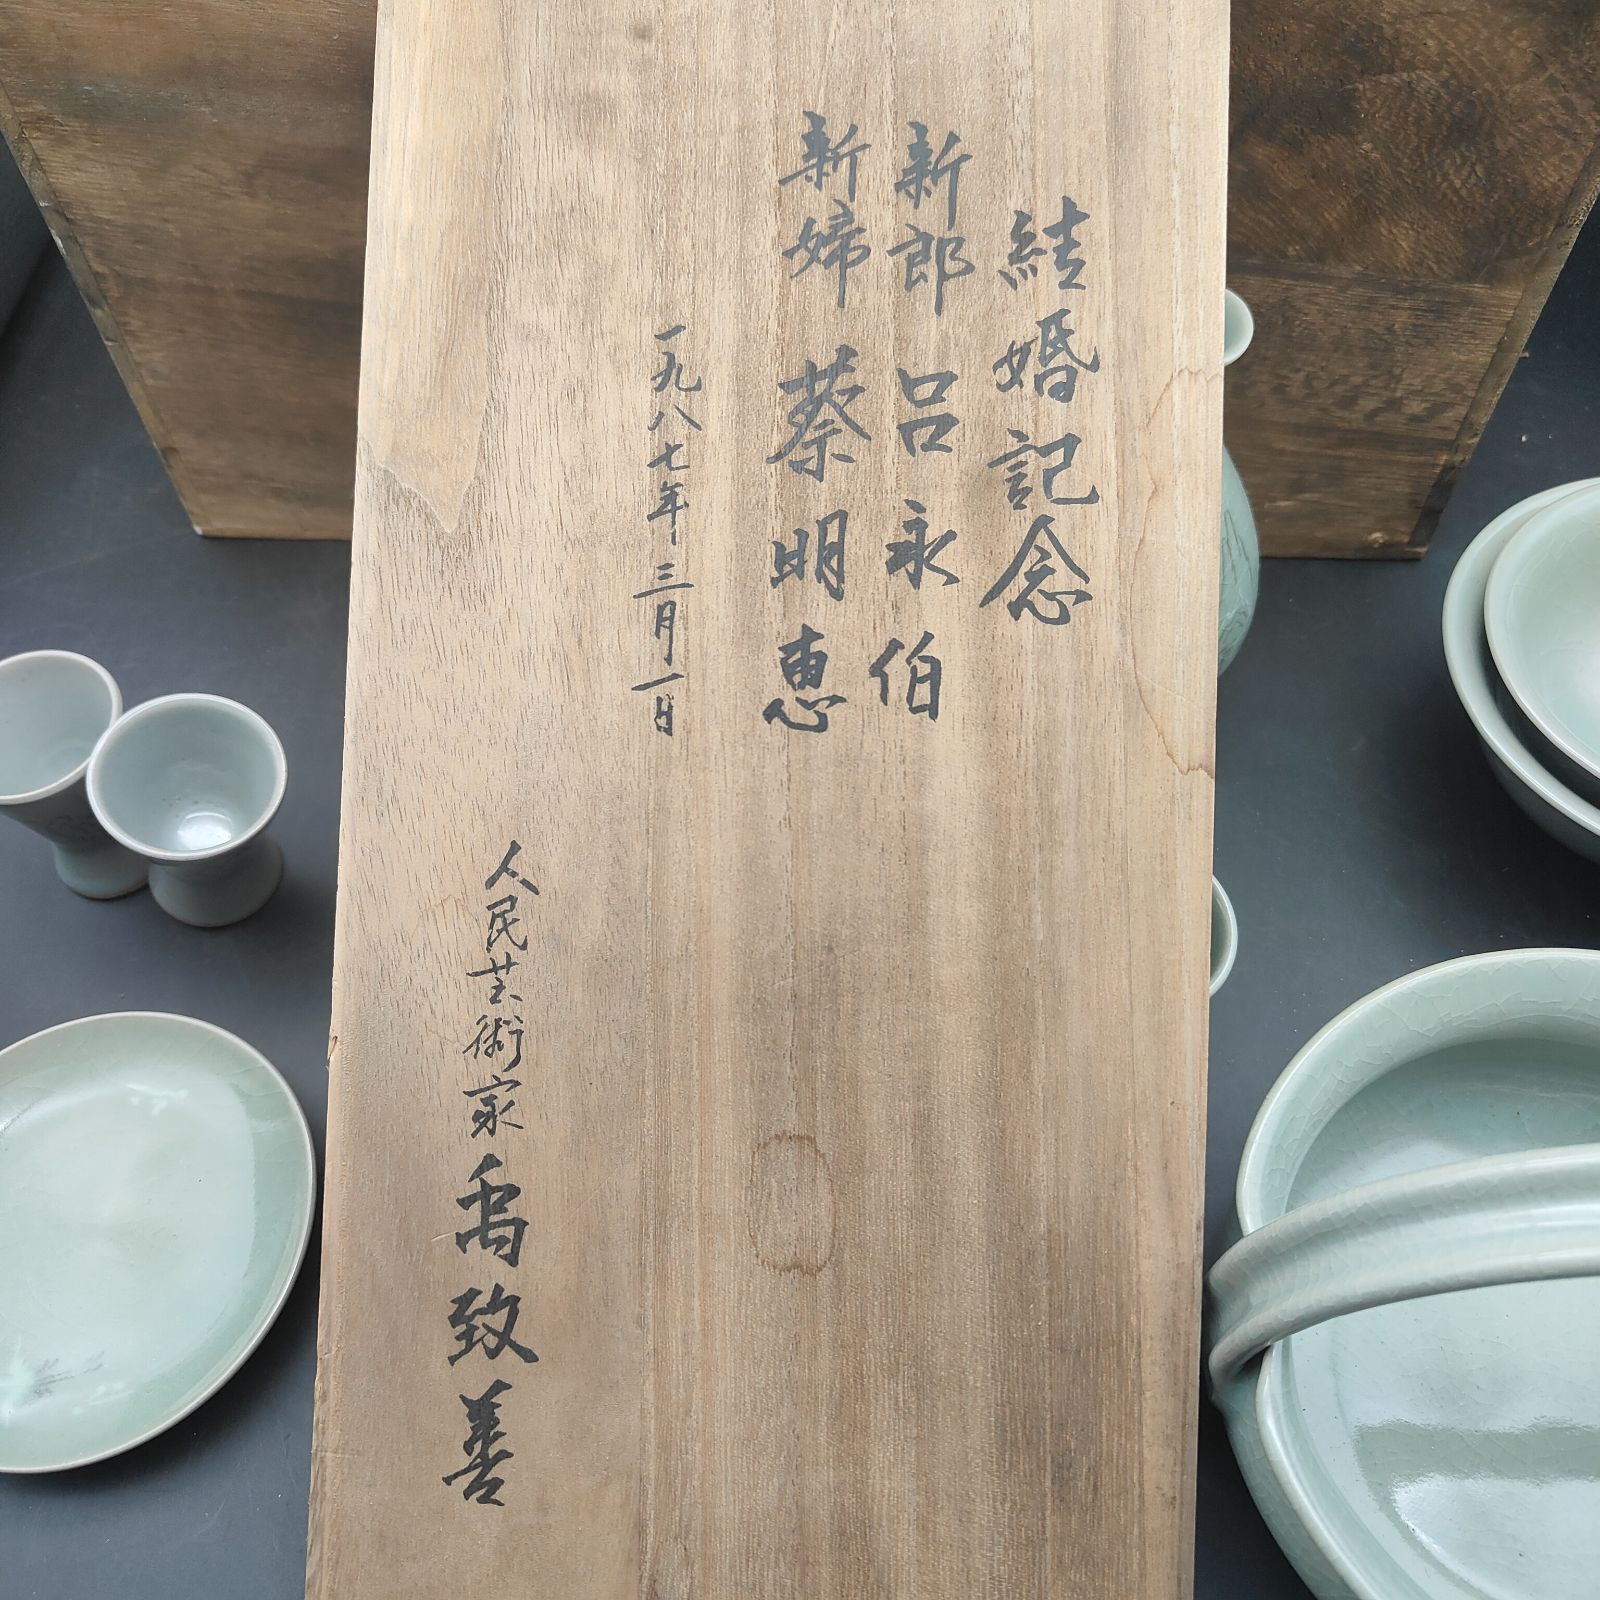 結婚記念
新郎 呂永伯
新婦 蔡明恵
一九八七年三月一日
人民芸術家 禹致善